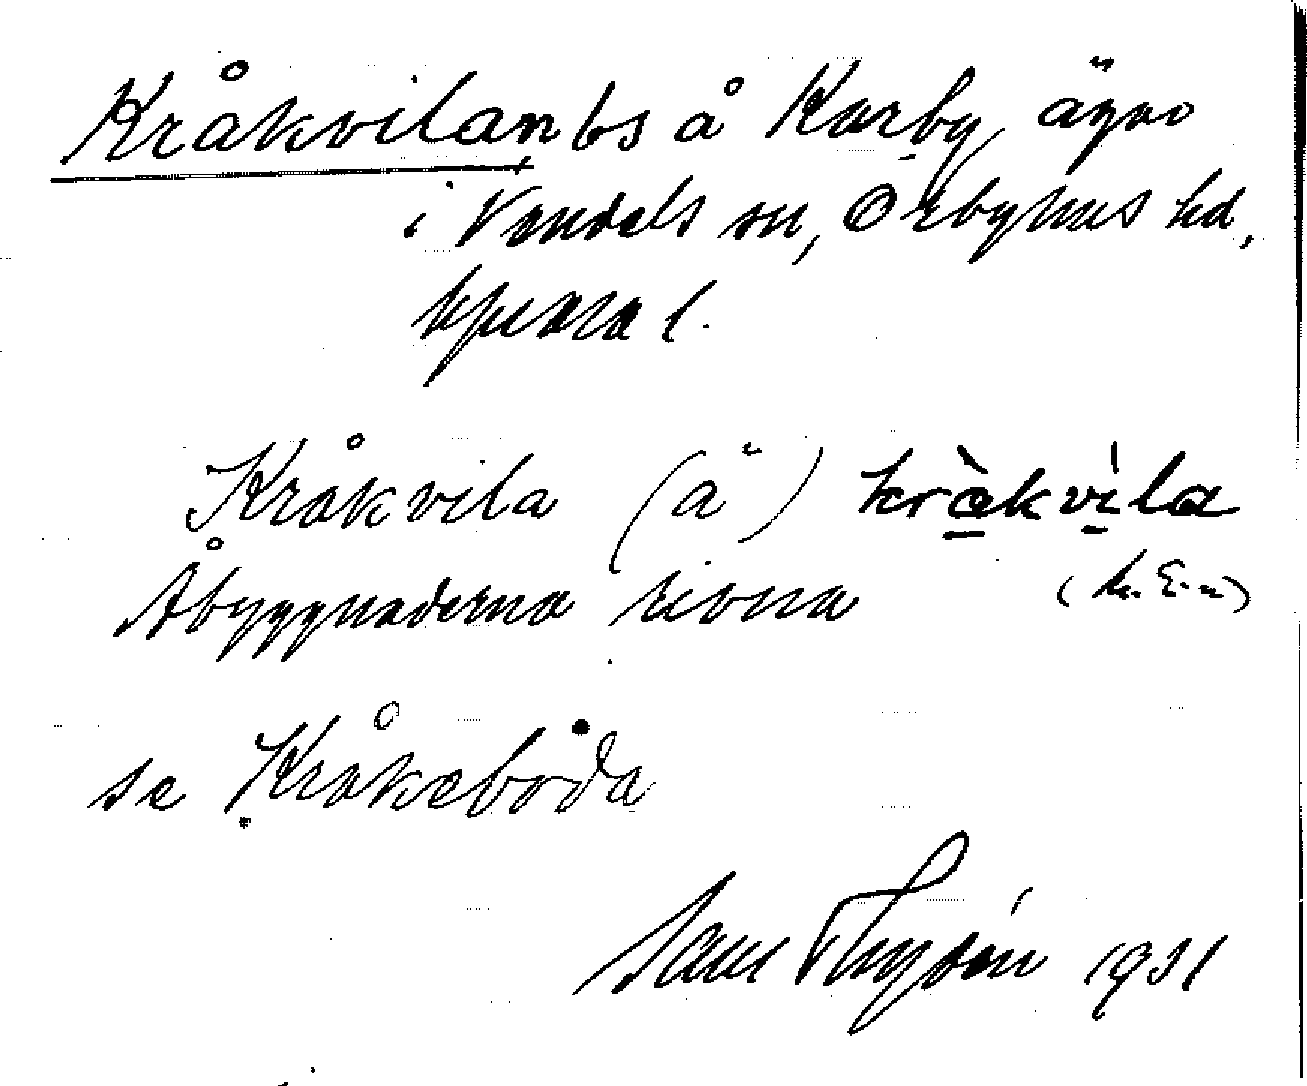 Kråkvilan bs å Karby ägor
i Vendels sn, Örbyhus hd,
Upsala l.
Kråkvila (å) kràkvìla
Åbyggnaderna rivna
se Kråkeboda
Sam Thydén 1931